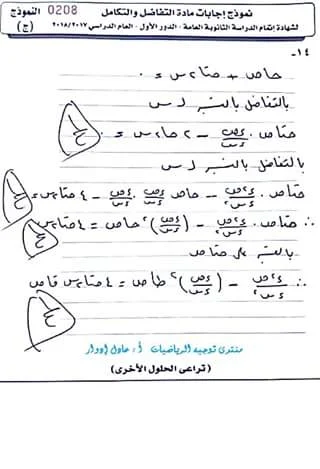 نموذج إجابات مادة التفاضل والتكامل 0208 النموذج
لشهادة إتمام الدراسة الثانوية العامة - الدور الأول - العام الدراسي ٢٠١٨/٢٠١٧ (ج)
١٤-
حاص + حتا٢س = ٠
بالتفاضل بالنسبة لـ س
حتاص . ءص/ءس - ٢ حا٢س = ٠
بالتفاضل بالنسبة لـ س
حتاص . ء٢ص/ءس٢ - حاص ءص/ءس . ءص/ءس - ٤ حتا٢س = ٠
∴ حتاص . ء٢ص/ءس٢ - (ءص/ءس)٢ حاص = ٤ حتا٢س
بالقسمة على حتاص
∴ ء٢ص/ءس٢ - (ءص/ءس)٢ طاص = ٤ حتا٢س قاص
منتدى توجيه الرياضيات أ/ عادل إدوار
(تراعى الحلول الأخرى)